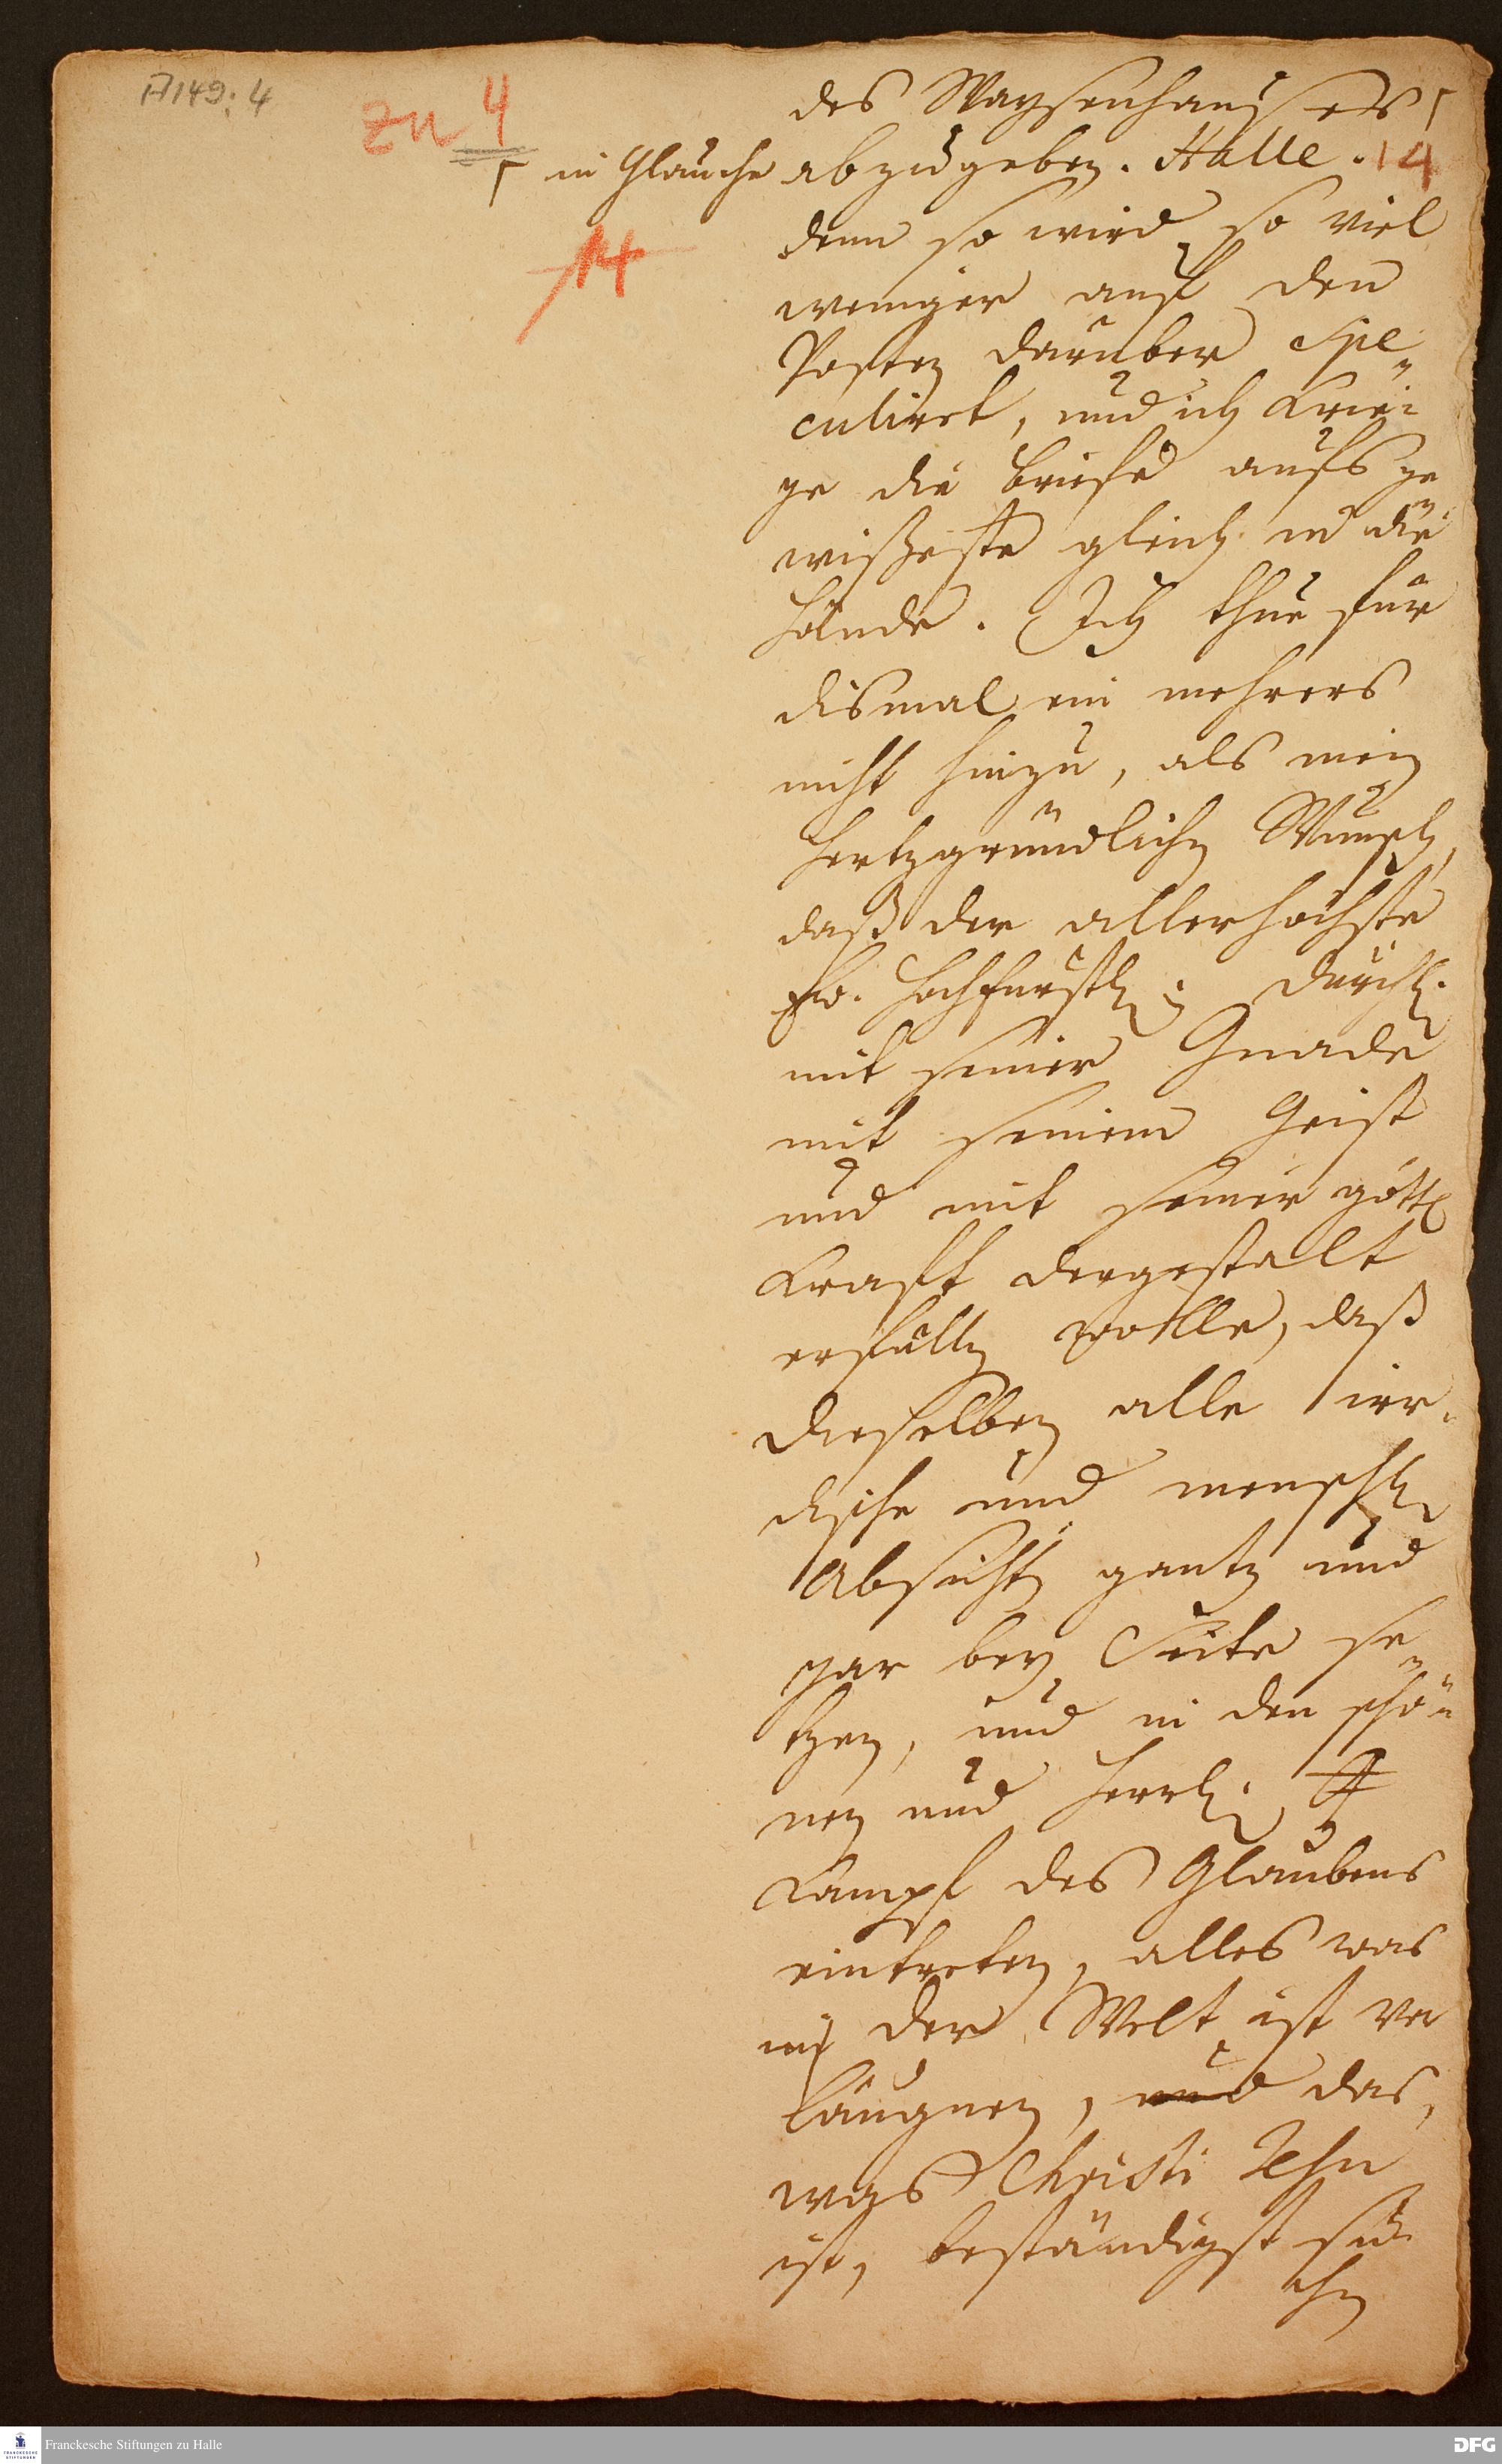 A149:4
zu 4
des Waysenhauses ⌈
⌈ in Glauche abzugeben. Halle. 14
14
denn so wird so viel
weniger auf den
Posten darüber spe„
culiret, und ich krie„
ge die briefe aufs ge„
wißeste gleich in die
Hände. Ich thue für
dismal ein mehrers
nicht hinzu, als mein
hertzgründlichen Wunsch,
daß der allerhöchste
Ew. Hochfürstl. Durchl.
mit seiner Gnade
mit seinem Geist
und mit seiner göttl
Krafft dergestalt
erfüllen wolle, daß
dieselben alle irr„
dische und menschl
Absichten gantz und
gar bey Seite se„
tzen, und in den schö„
nen und herrl.
Kampf des Glaubens
eintreten, alles was
in der Welt ist ver
läugnen, und das,
was Christi
ist, beständigst su
chen
Franckesche Stiftungen zu Halle
DFG